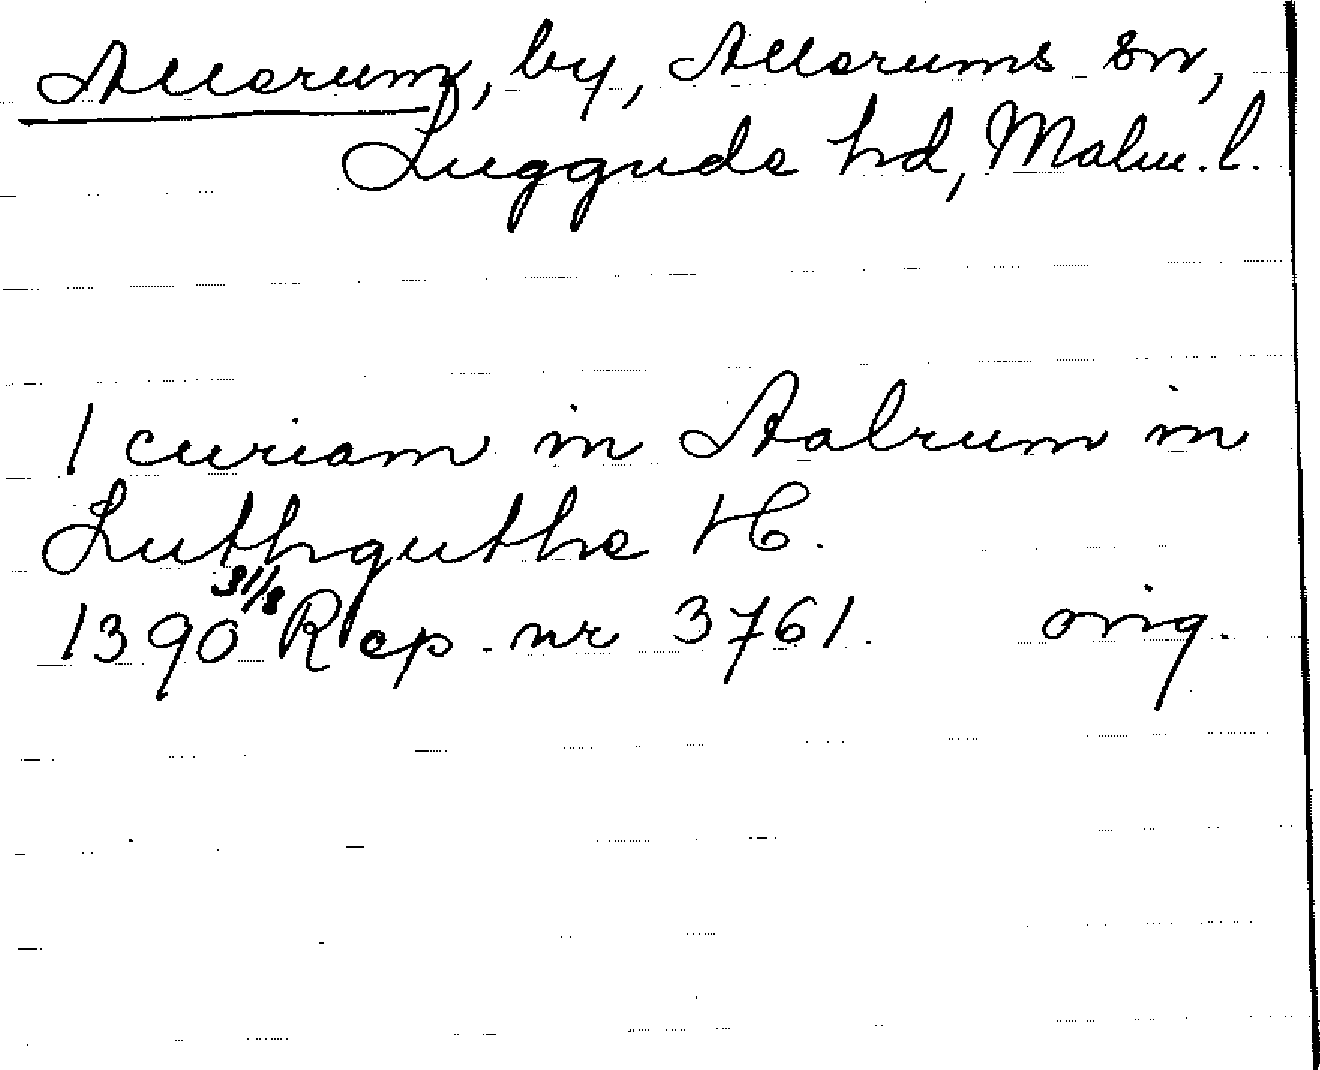 Allerum, by, Allerums sn,
Luggude hd, Malm. l.
1 curiam in Aalrum in
Luthguthe H.
1390 31/8 Rep. nr 3761. orig.